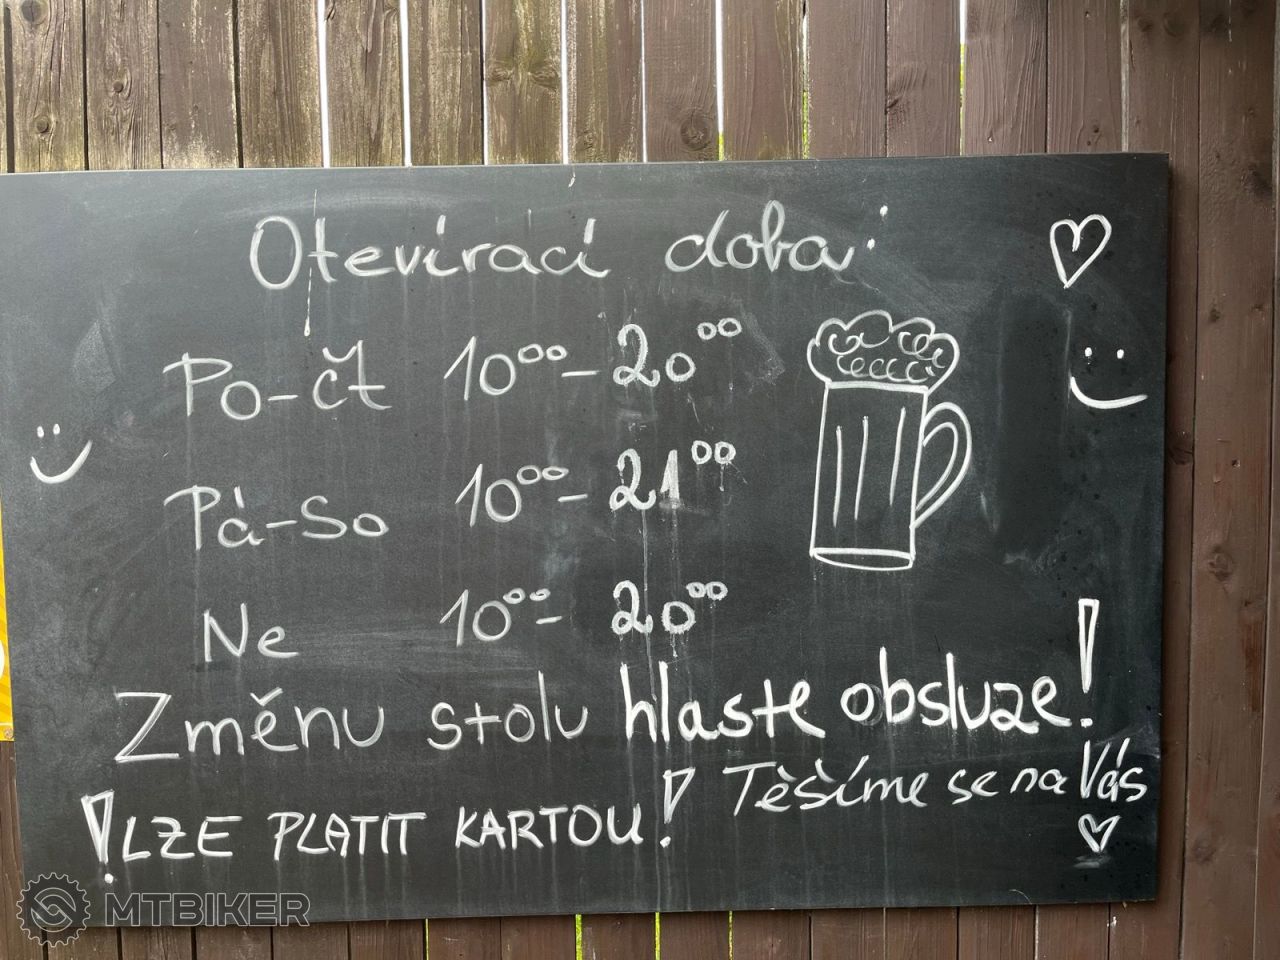 Otevírací doba:
Po-čt 10⁰⁰-20⁰⁰
Pà-So 10⁰⁰-21⁰⁰
Ne 10⁰⁰-20⁰⁰
Změnu stolu hlaste obsluze!
!LZE PLATIT KARTOU!
Těšíme se na Vás
MTBIKER